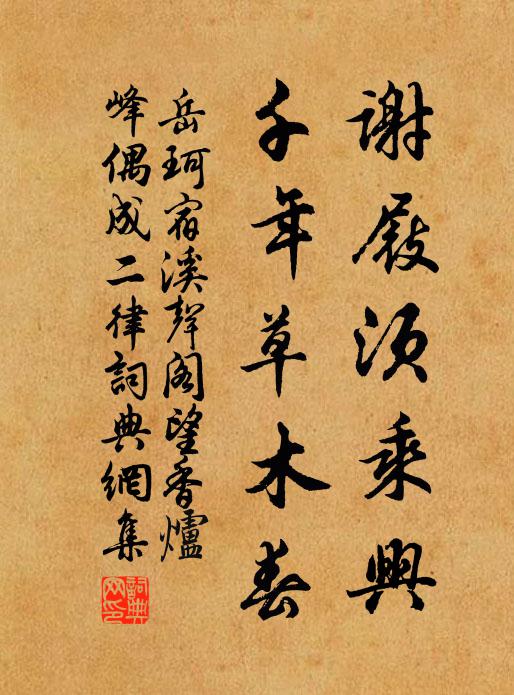 謝屐須乘興
千年草木春
岳珂宿溪聲閣望香爐
峰偶成二律詞典網集
詞典網印